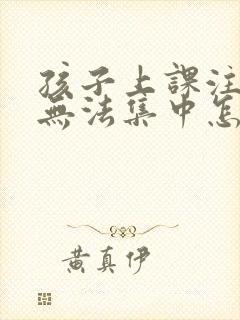 孩子上課注
無法集中怎
黃真伊